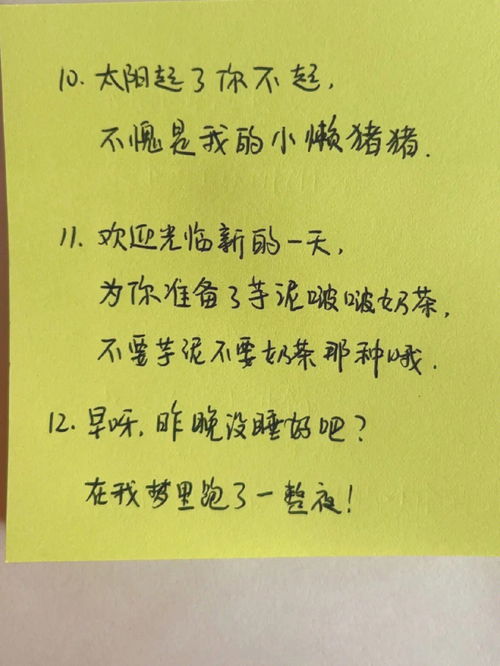 10. 太阳起了你不起,
不愧是我的小懒猪猪.
11. 欢迎光临新的一天,
为你准备了芋泥啵啵奶茶,
不要芋泥不要奶茶那种哦.
12. 早呀, 昨晚没睡好吧?
在我梦里跑了一整夜!